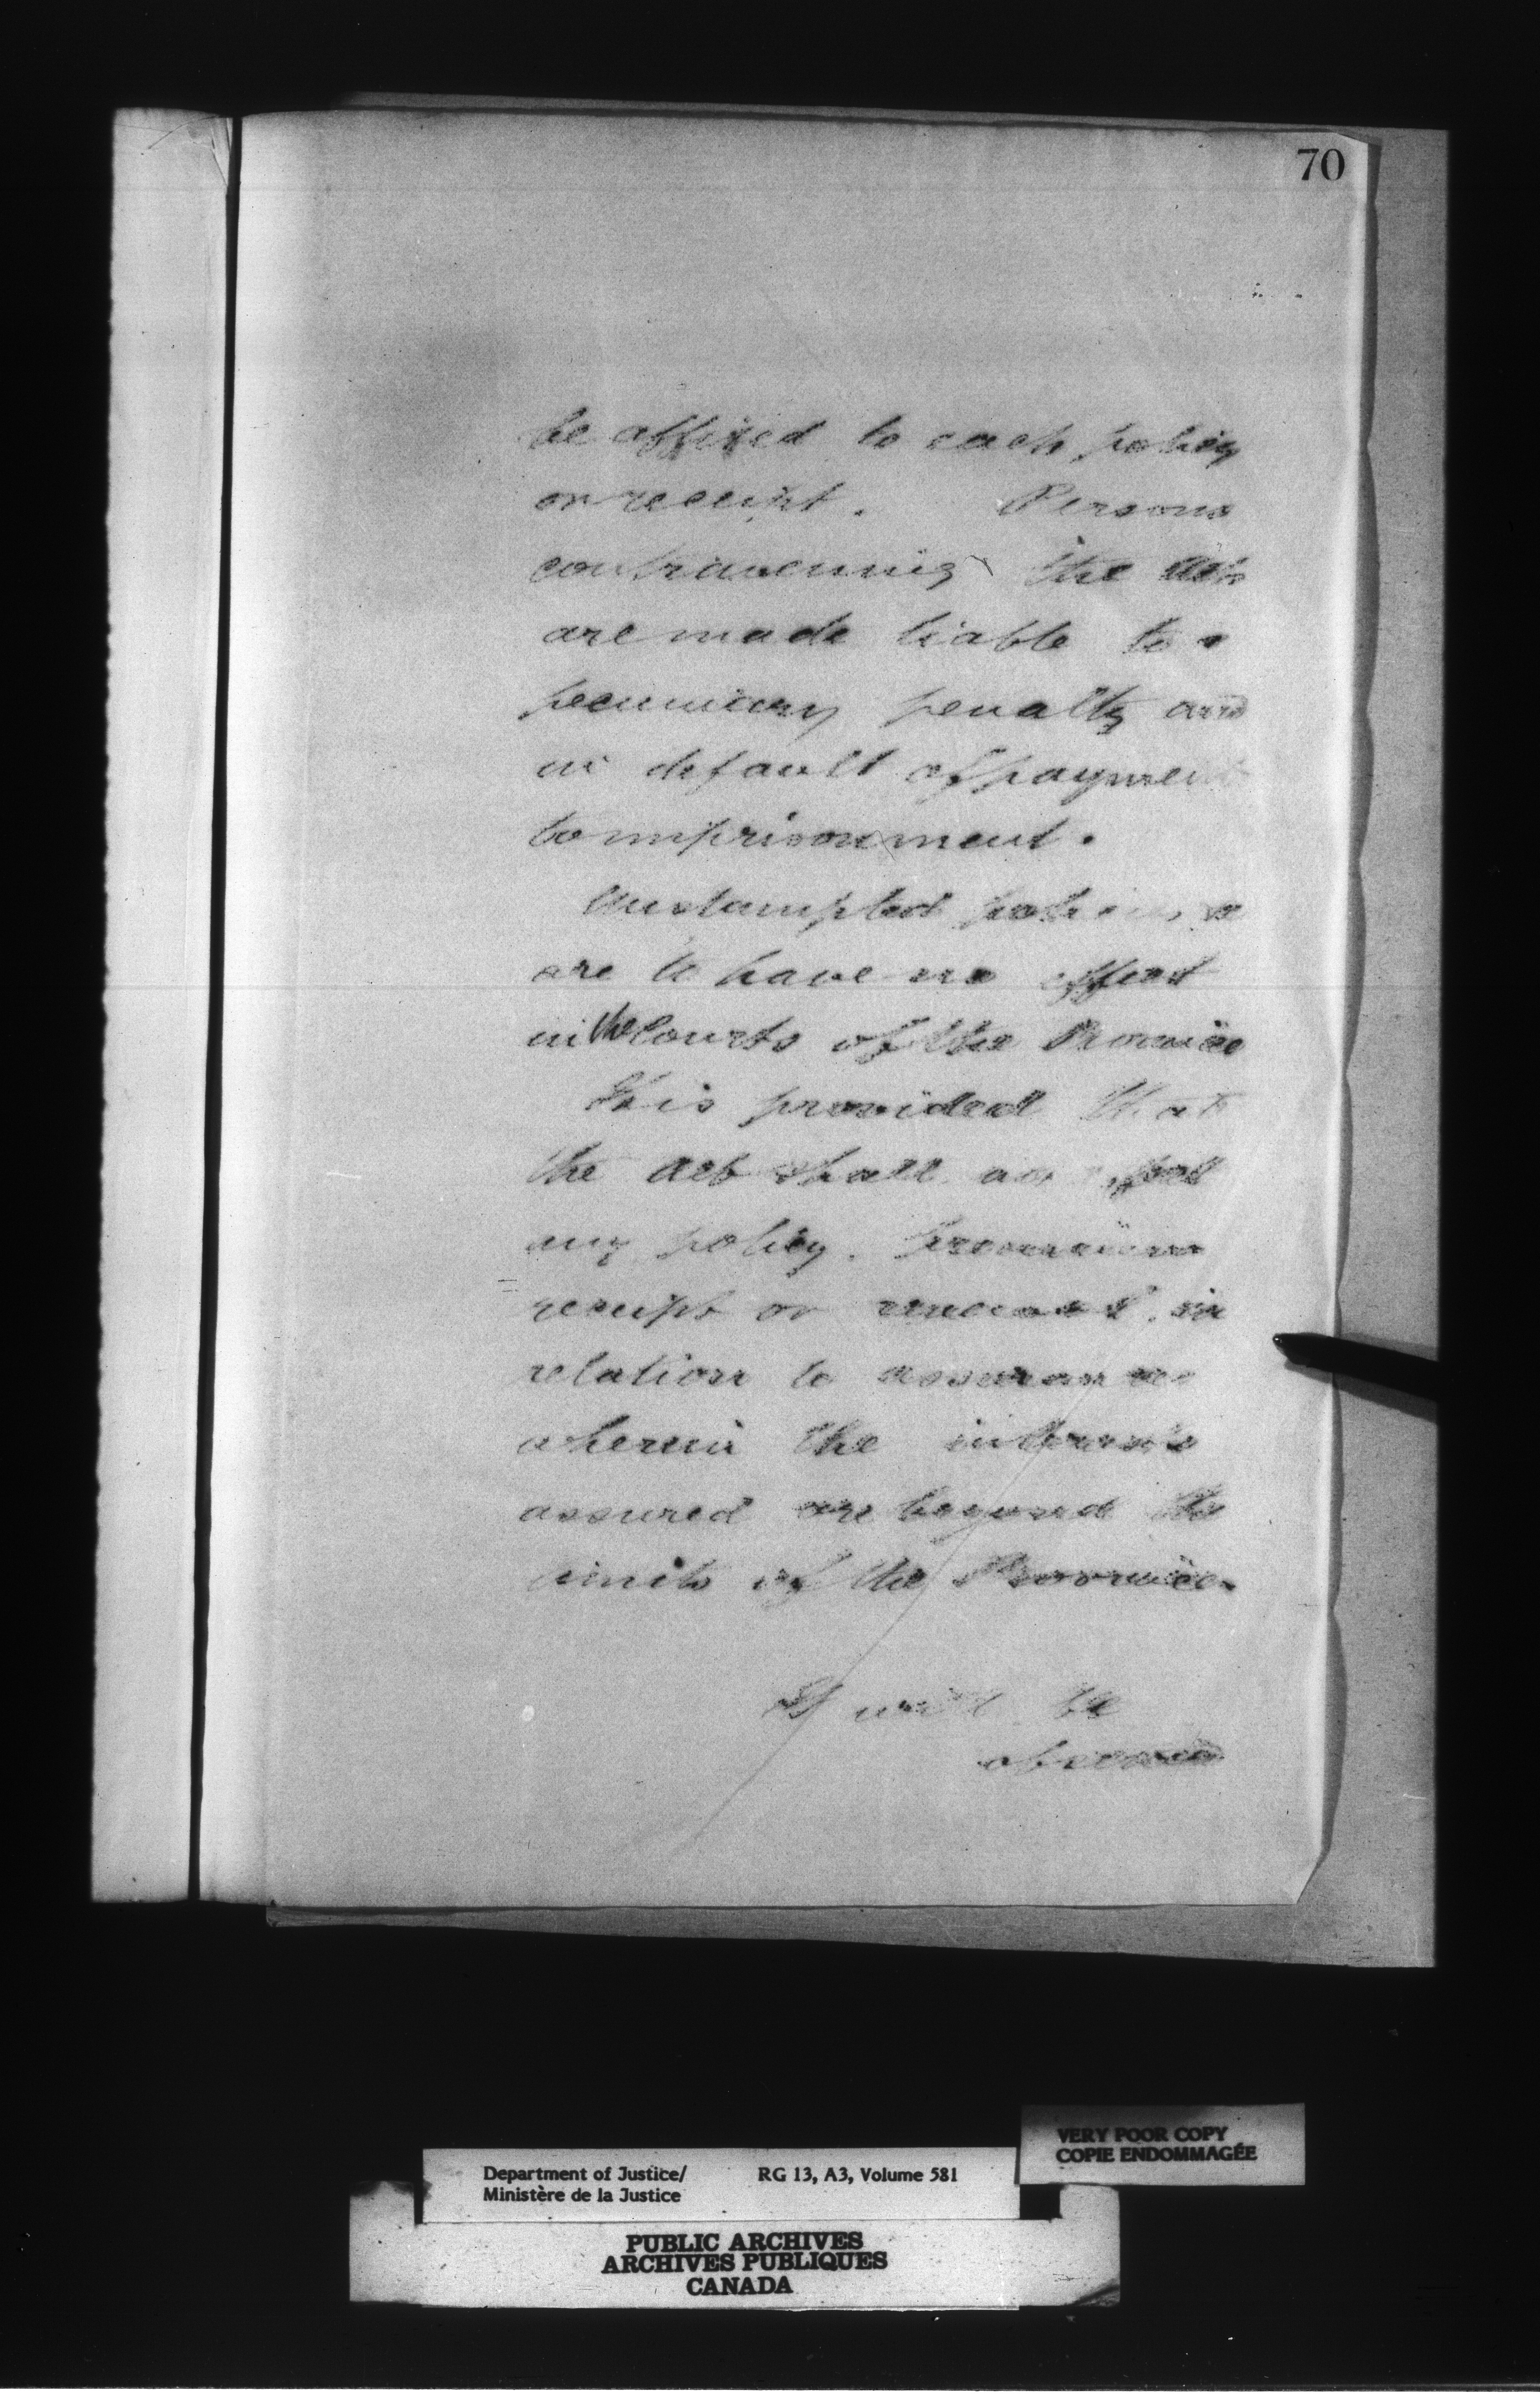 70
be affixed to each policy
or receipt. Persons
contravening the Act
are made liable to a
pecuniary penalty and
in default of payment
to imprisonment.
Unstamped policies
are to have no effect
in the Courts of the Province
It is provided that
the Act shall not affect
any policy. Premium
receipt or renewal in
relation to assurances
wherein the interests
assured are beyond the
limits of the Province.
It will be
observed
VERY POOR COPY
COPIE ENDOMMAGÉE
Department of Justice/ RG 13, A3, Volume 581
Ministère de la Justice
PUBLIC ARCHIVES
ARCHIVES PUBLIQUES
CANADA